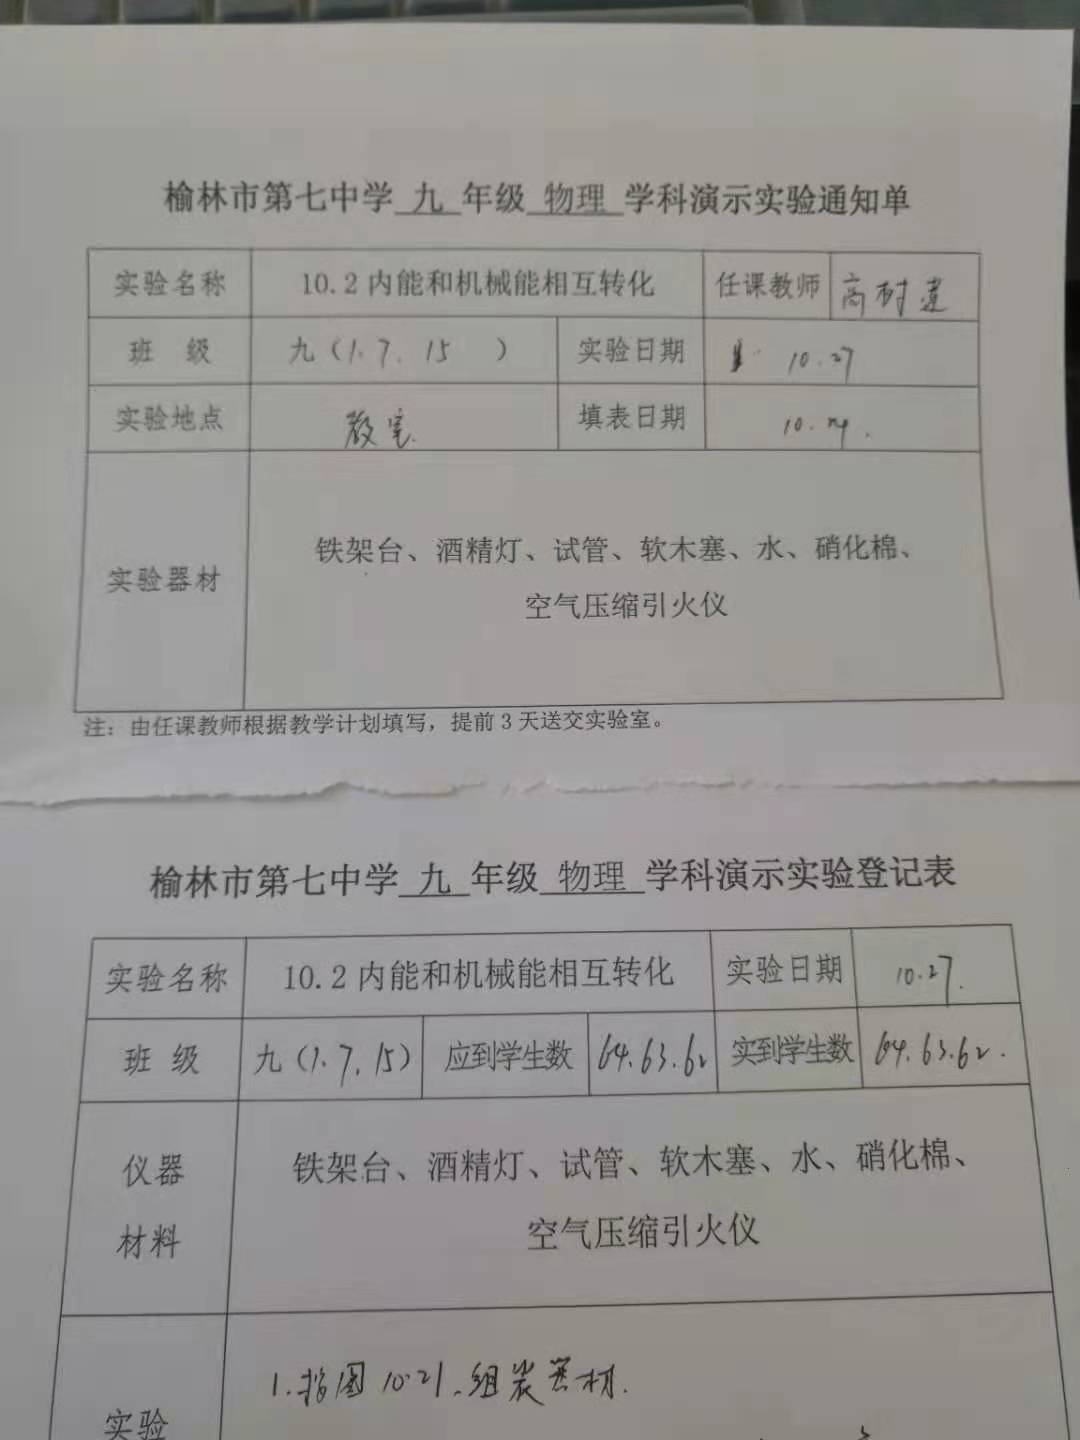 榆林市第七中学 九 年级 物理 学科演示实验通知单
实验名称 10.2内能和机械能相互转化 任课教师 高树
班 级 九（1.7.15 ） 实验日期 10.27
实验地点 教室. 填表日期 10.24.
实验器材 铁架台、酒精灯、试管、软木塞、水、硝化棉、
空气压缩引火仪
注：由任课教师根据教学计划填写，提前3天送交实验室。
榆林市第七中学 九 年级 物理 学科演示实验登记表
实验名称 10.2内能和机械能相互转化 实验日期 10.27.
班 级 九（1.7.15） 应到学生数 64.63.62 实到学生数 64.63.62.
仪器
材料
铁架台、酒精灯、试管、软木塞、水、硝化棉、
空气压缩引火仪
1.按图10-21.组装器材.
实验